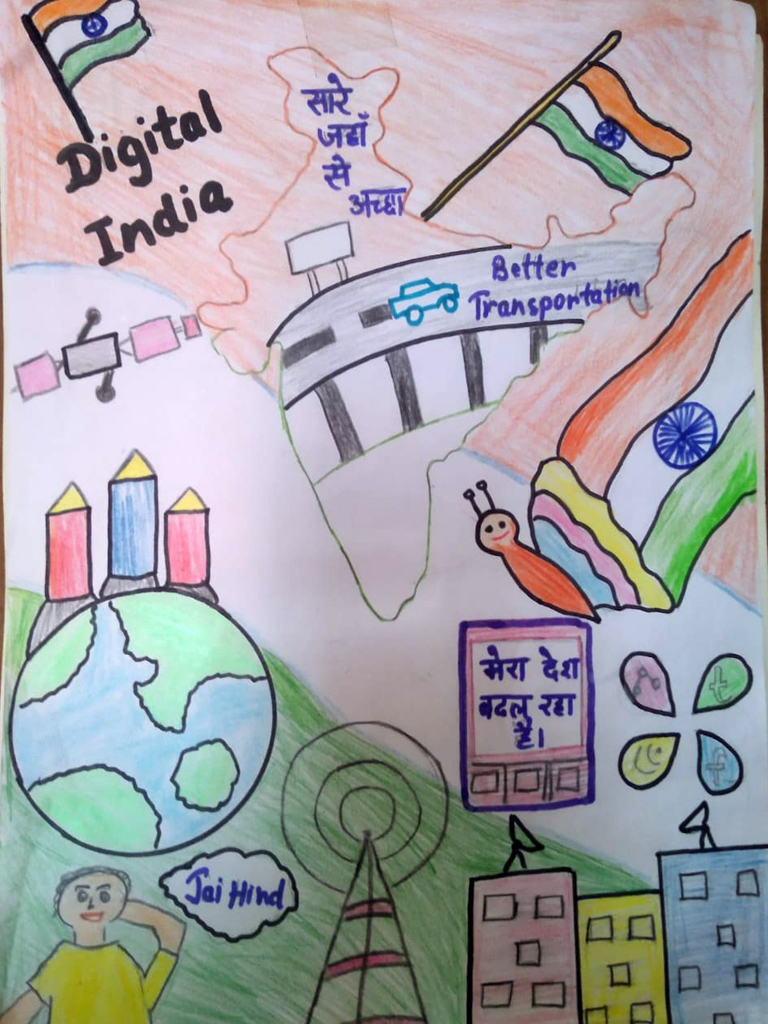 Digital
India
सारे
जहाँ
से
अच्छा
Better
Transportation
मेरा देश
बदल रहा
है।
t
f
Jai Hind